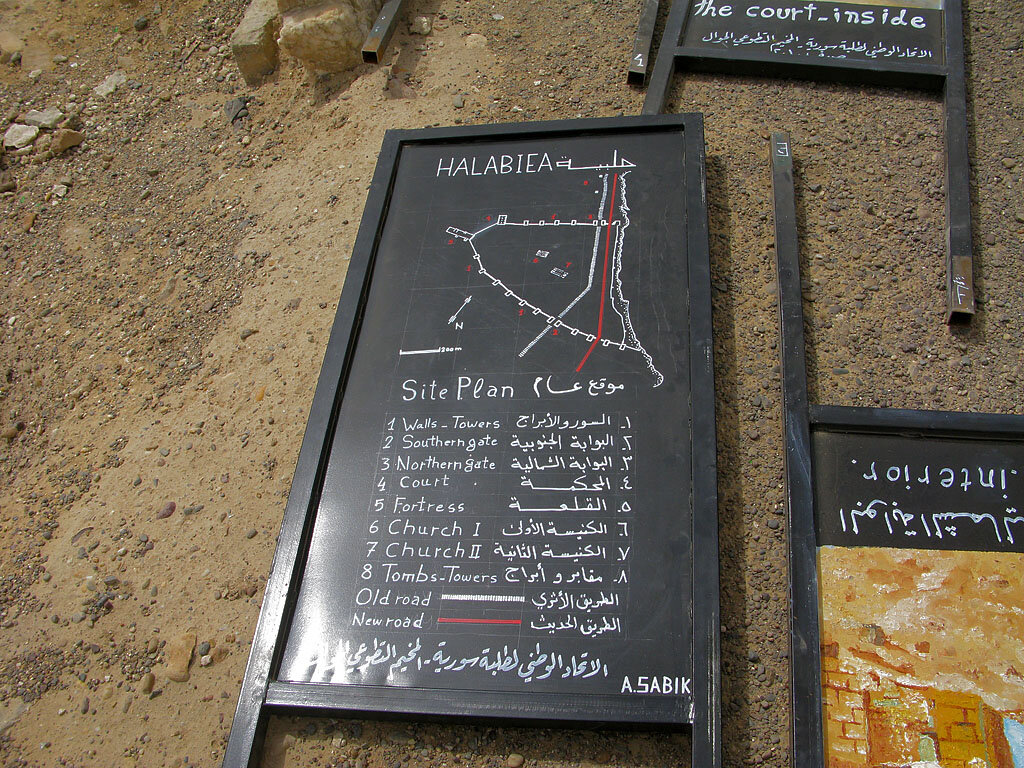 the court-inside
الاتحاد الوطني لطلبة سورية - المخيم التطوعي الجوال
HALABIEA حلبية
N
200m
Site Plan موقع عام
1 Walls-Towers السور والأبراج ١.
2 Southern gate البوابة الجنوبية ٢.
3 Northern gate البوابة الشمالية ٣.
4 Court المحكمة ٤.
5 Fortress القلعة ٥.
6 Church I الكنيسة الأولى ٦.
7 Church II الكنيسة الثانية ٧.
8 Tombs-Towers مقابر و أبراج ٨.
Old road الطريق الأثري
New road الطريق الحديث
الاتحاد الوطني لطلبة سورية - المخيم التطوعي
A.SABIK
interior.
البوابة الشمالية